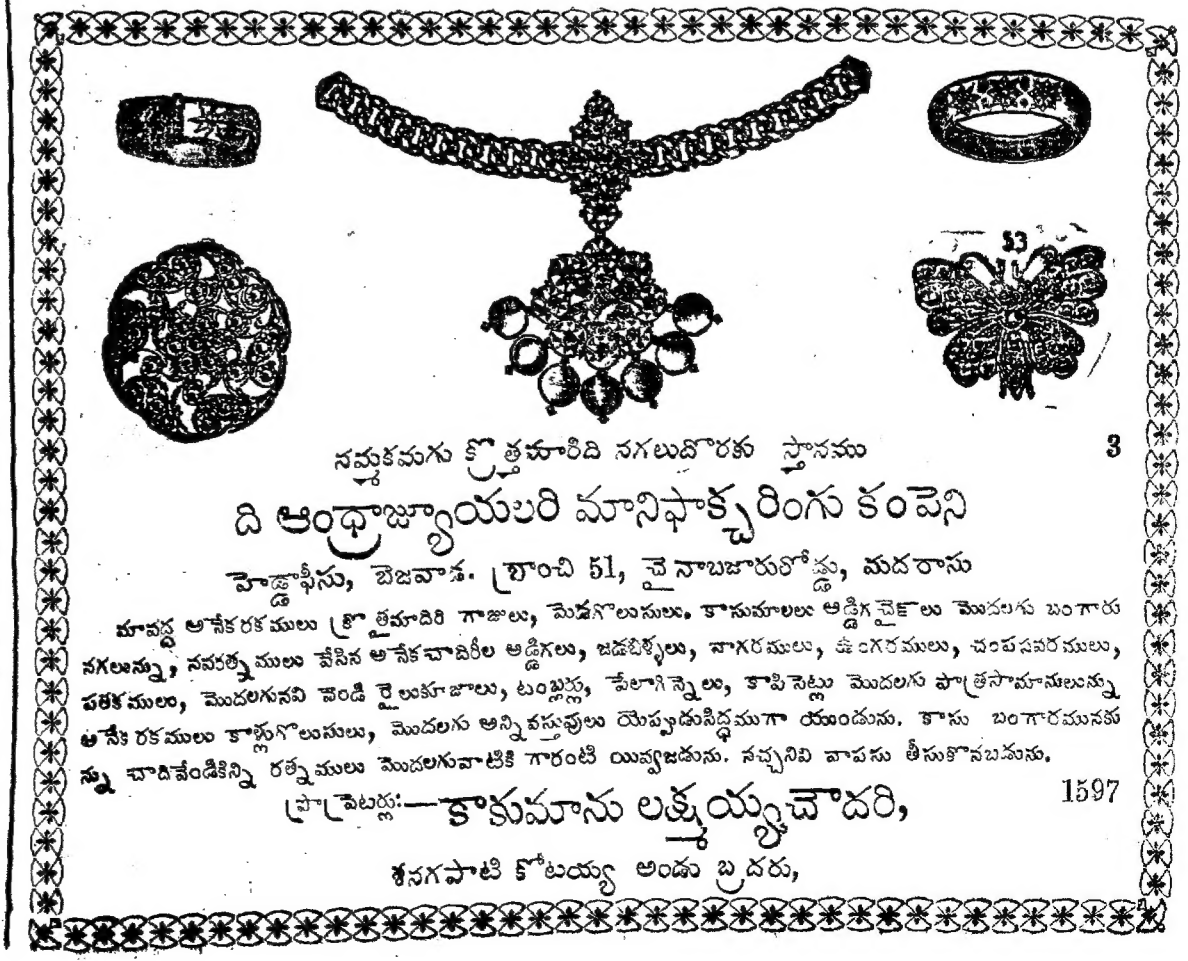 53
నమ్మకమగు క్రొత్తమాదిరి నగలుదొరకు స్తానము 3
ది ఆంధ్రాజ్యూయలరి మానిఫాక్చరింగు కంపెని
హెడ్డాఫీసు, బెజవాడ. బ్రాంచి 51, చైనాబజారురోడ్డు, మదరాసు
మావద్ద అనేకరకములు క్రొత్తమాదిరి గాజులు, మెడగొలుసులు. కాసుమాలలు అడ్డిగచైక్‌లు మొదలగు బంగారు
నగలున్ను, నవరత్నములు వేసిన అనేకమాదిరీల అడ్డిగలు, జడబిళ్ళలు, నాగరములు, ఉంగరములు, చంపసవరములు,
పతకములు, మొదలగునవి వెండి రైలుకూజాలు, టంబ్లర్లు, పేలాగిన్నెలు, కాపిసెట్లు మొదలగు పాత్రసామానులున్ను
అనేక రకములు కాళ్లుగొలుసులు, మొదలగు అన్నివస్తువులు యెప్పుడుసిద్ధముగా యుండును. కాసు బంగారమునకు
న్ను చాదివేండికిన్ని రత్నములు మొదలగువాటికి గారంటి యివ్వబడును. నచ్చనివి వాపసు తీసుకొనబడును.
ప్రొప్రైటర్లు:—కాకుమాను లక్ష్మయ్యచౌదరి, 1597
శనగపాటి కోటయ్య అండు బ్రదరు,